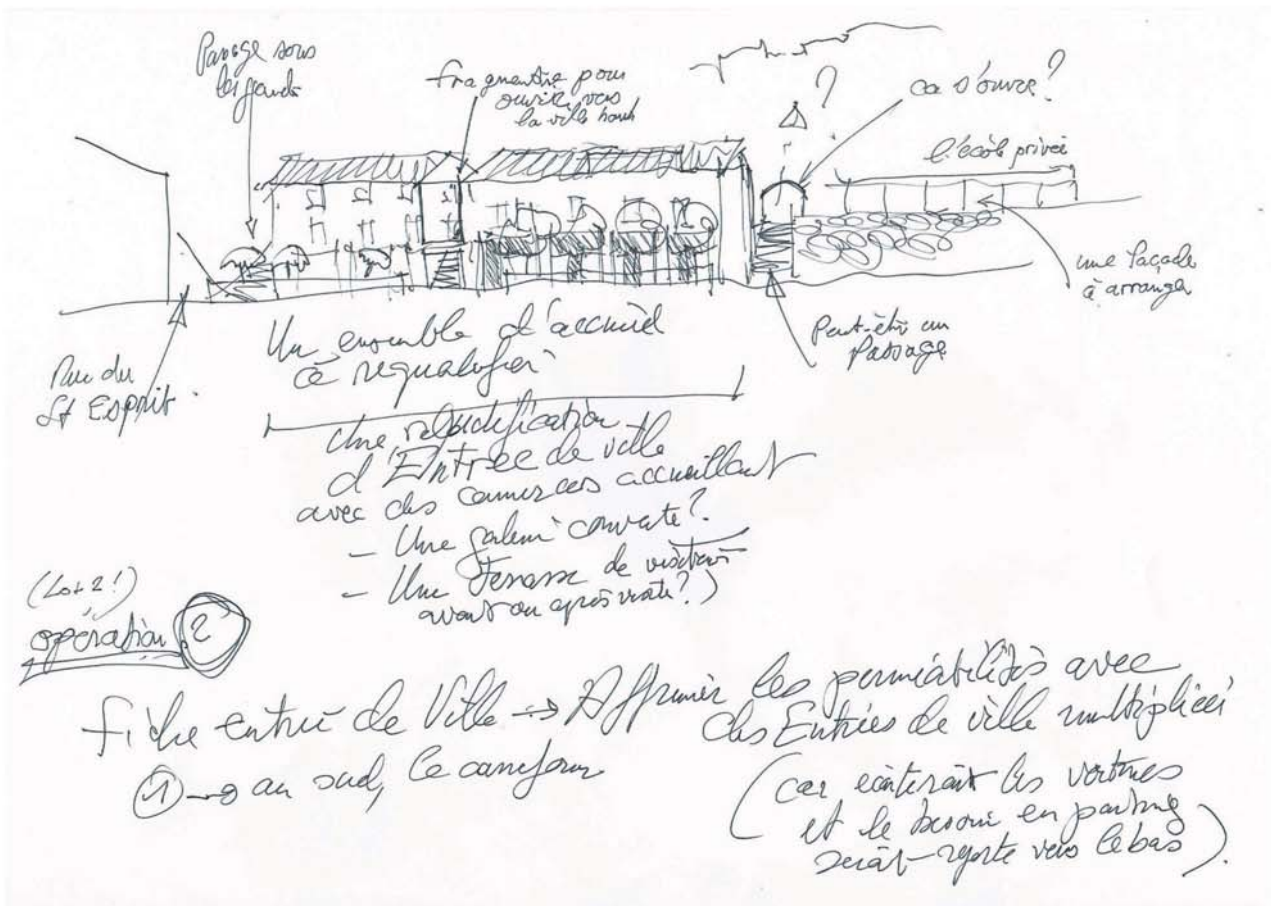 Passage sous
les
fragmentée pour
ouvrir vers
la ville haute
?
ça s'ouvre?
l'école privée
une façade
à arranger
Peut-être un
Passage
Rue du
St Esprit
Un ensemble d'accueil
à requalifier
Une
d'Entrée de ville
avec des commerces accueillant
- Une galerie couverte?
- Une Terrasse de visiteurs
avant ou après visite?)
(Lot 2!)
opération 2
fiche entrée de Ville → Affirmer les perméabilités avec
des Entrées de ville multipliées
① → au sud, le carrefour
(car les voitures
et le besoin en parking
serait reporté vers le bas).